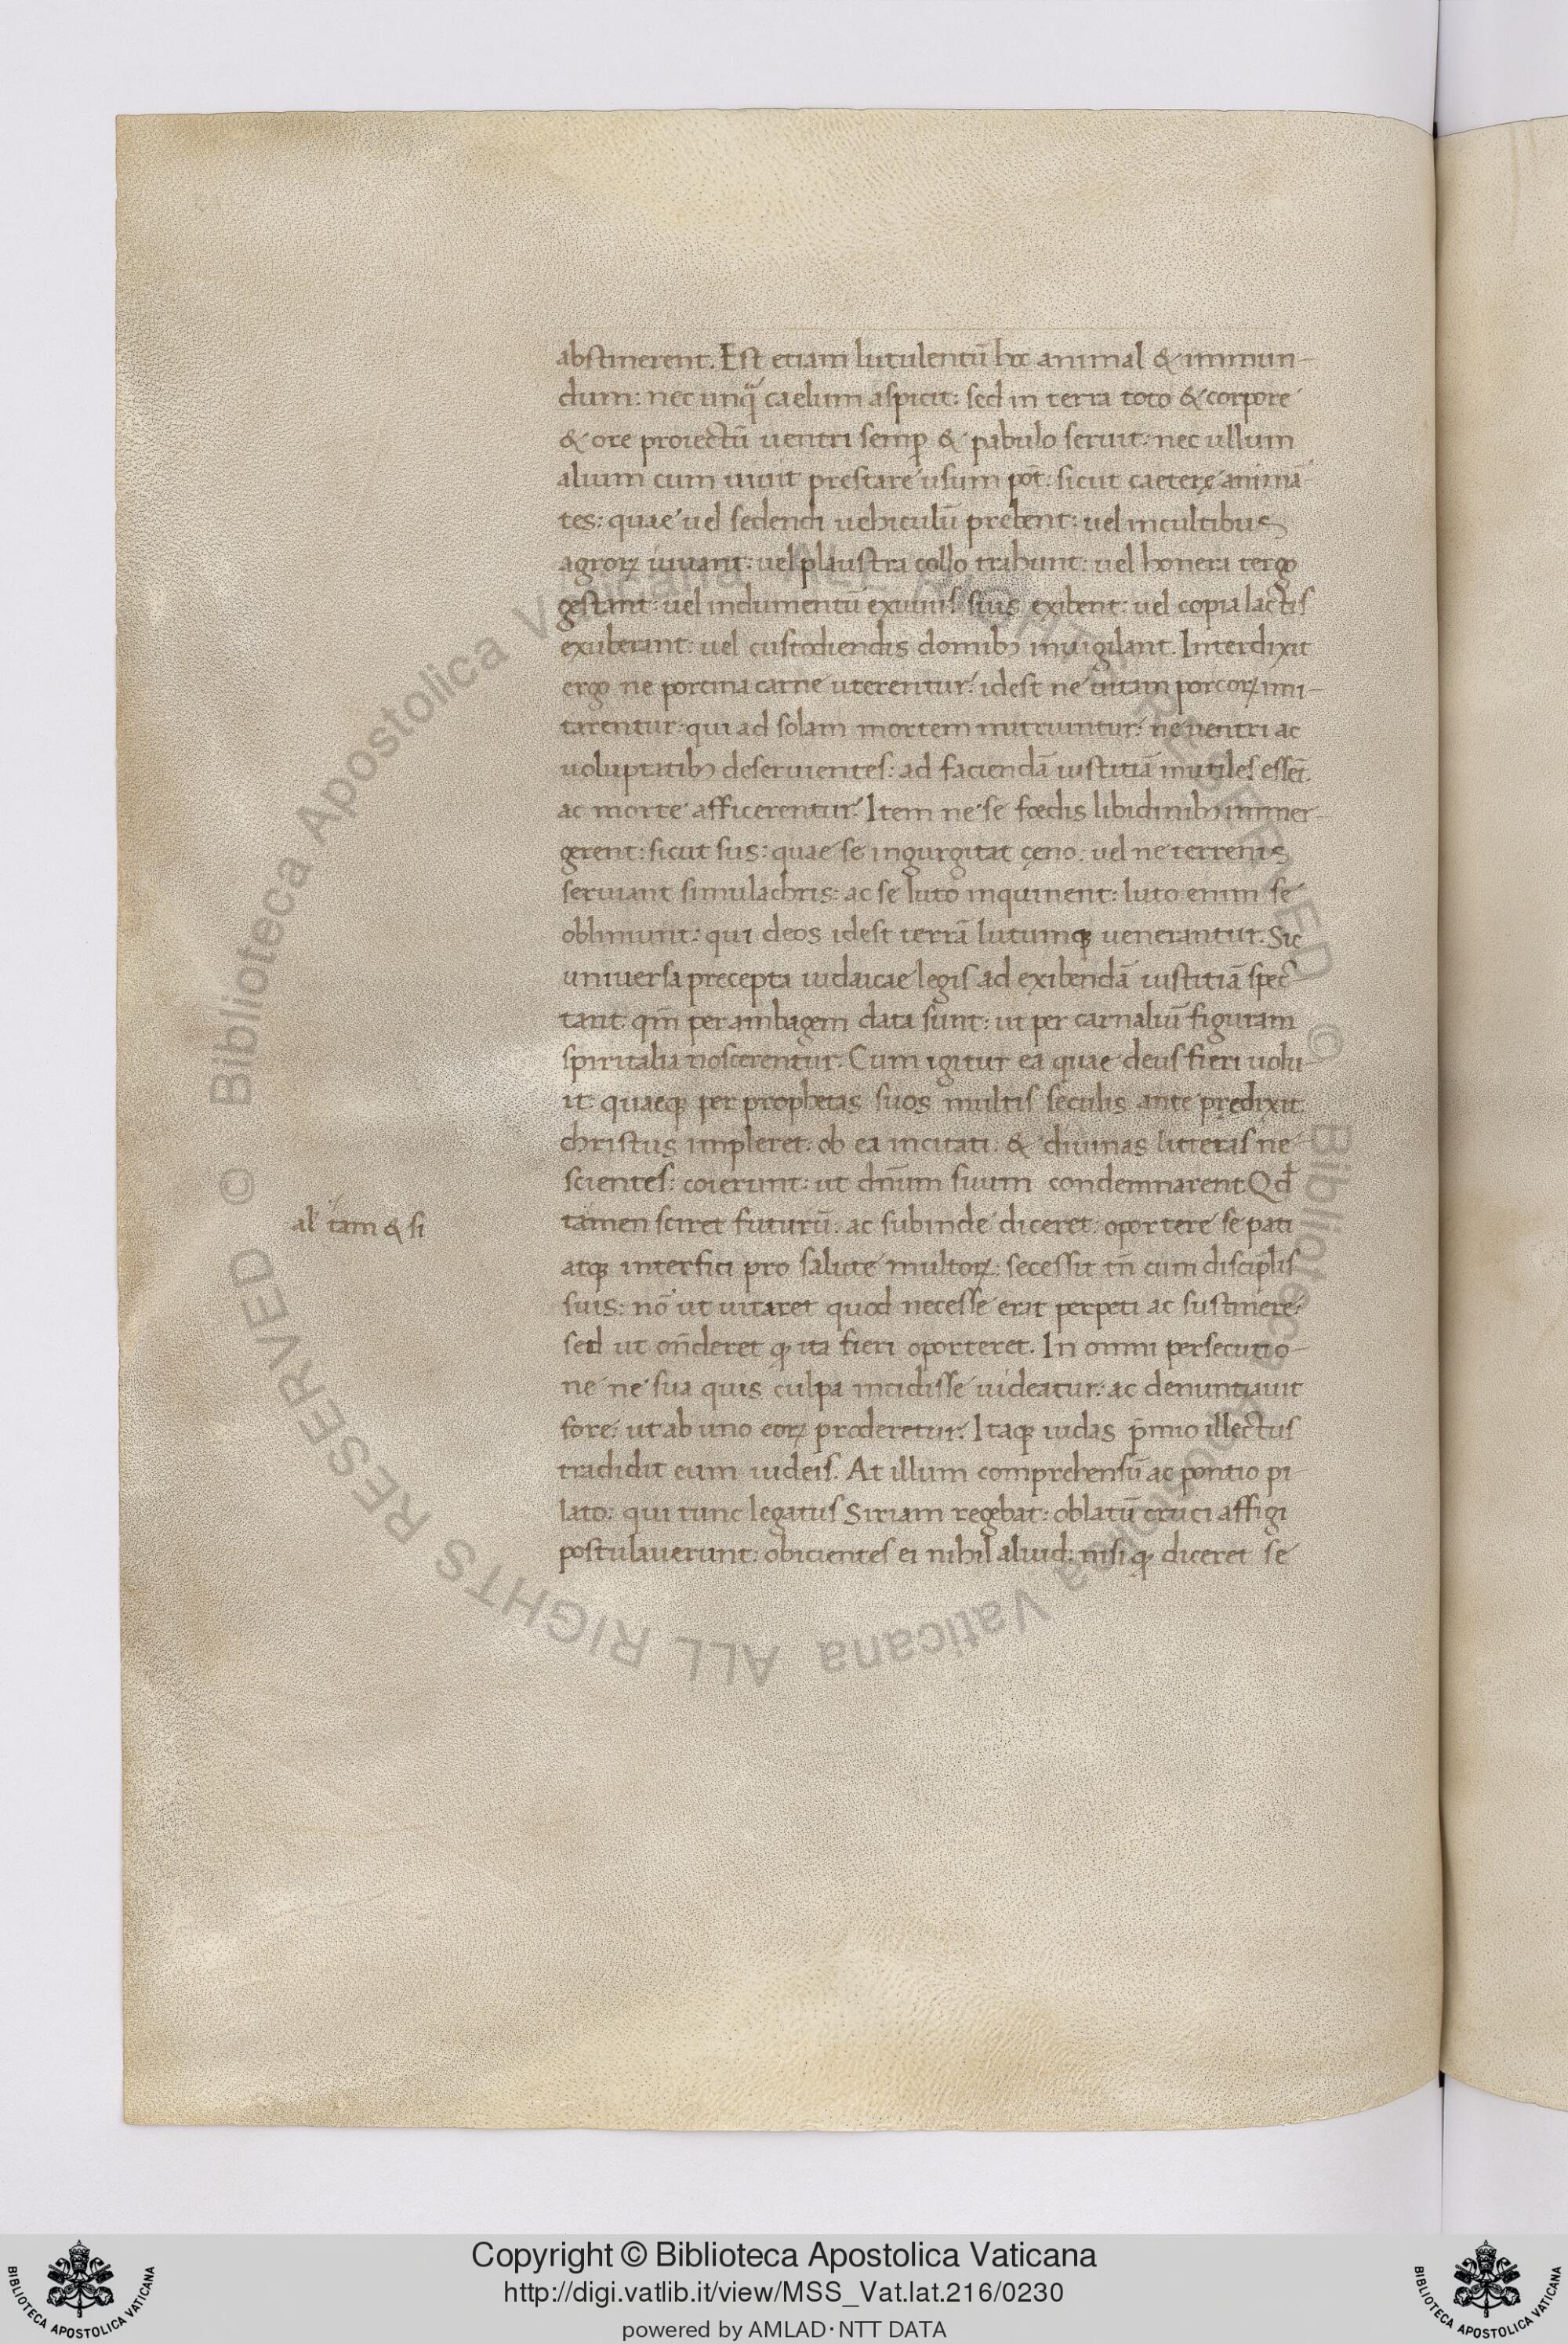 abstinerent. Est etiam lutulentū hoc animal & immun-
dum: nec unq̃ caelum aspicit: sed in terra toto & corpore
& ore proiectū uentri semp̱ & pabulo seruit: nec ullum
alium cum uiuit prestare usum pōt: sicut caeterę animā
tes: quae uel sedendi uehiculū prebent: uel in cultibus
agroꝝ iuuant: uel plaustra collo trahunt: uel honera tergo
gestant: uel indumentū exuuiis suis exibent: uel copia lactis
exuberant: uel custodiendis domibꝫ inuigilant. Interdixit
ergo ne porcina carne uterentur: idest ne uitam porcoꝝ imi-
tarentur: qui ad solam mortem nutriuntur: ne uentri ac
uoluptatibꝫ deseruientes: ad faciendā iustitiā inutiles essēt.
ac morte afficerentur. Item ne se fœdis libidinibꝫ immer-
gerent: sicut sus: quae se ingurgitat cęno. uel ne terrenis
seruiant simulachris: ac se luto inquinent: luto enim se
oblimunt: qui deos idest terrā lutumqꝫ uenerantur. Sic
uniuersa precepta iudaicae legis ad exibendā iustitiā spec-
tant: qm̄ per ambagem data sunt: ut per carnaliū figuram
spiritalia noscerentur. Cum igitur ea quae deus fieri uolu-
it quaeqꝫ per prophetas suos multis seculis ante prędixit.
christus impleret: ob ea incitati. & diuinas litteras ne-
scientes: coierunt: ut dn̄um suum condemnarent Qđ
al' tam & si
tamen sciret futurū: ac subinde diceret: oportere se pati
atqꝫ interfici pro salute multoꝝ: secessit tn̄ cum discip̄lis
suis: nō ut uitaret quod necesse erat perpeti ac sustinere:
sed ut on̄deret qꝫ ita fieri oporteret. In omni persecutio-
ne ne sua quis culpa incidisse uideatur: ac denuntiauit
fore: ut ab uno eoꝝ proderetur. Itaqꝫ iudas p̄mio illectus
tradidit eum iudeis. At illum comprehensū ac pontio pi-
lato: qui tunc legatus Siriam regebat: oblatū cruci affigi
postulauerunt: obicientes ei nihil aliud: nisi qꝫ diceret se
Copyright © Biblioteca Apostolica Vaticana
http://digi.vatlib.it/view/MSS_Vat.lat.216/0230
powered by AMLAD·NTT DATA
BIBLIOTECA APOSTOLICA VATICANA
BIBLIOTECA APOSTOLICA VATICANA
© Biblioteca Apostolica Vaticana ALL RIGHTS RESERVED © Biblioteca Apostolica Vaticana ALL RIGHTS RESERVED